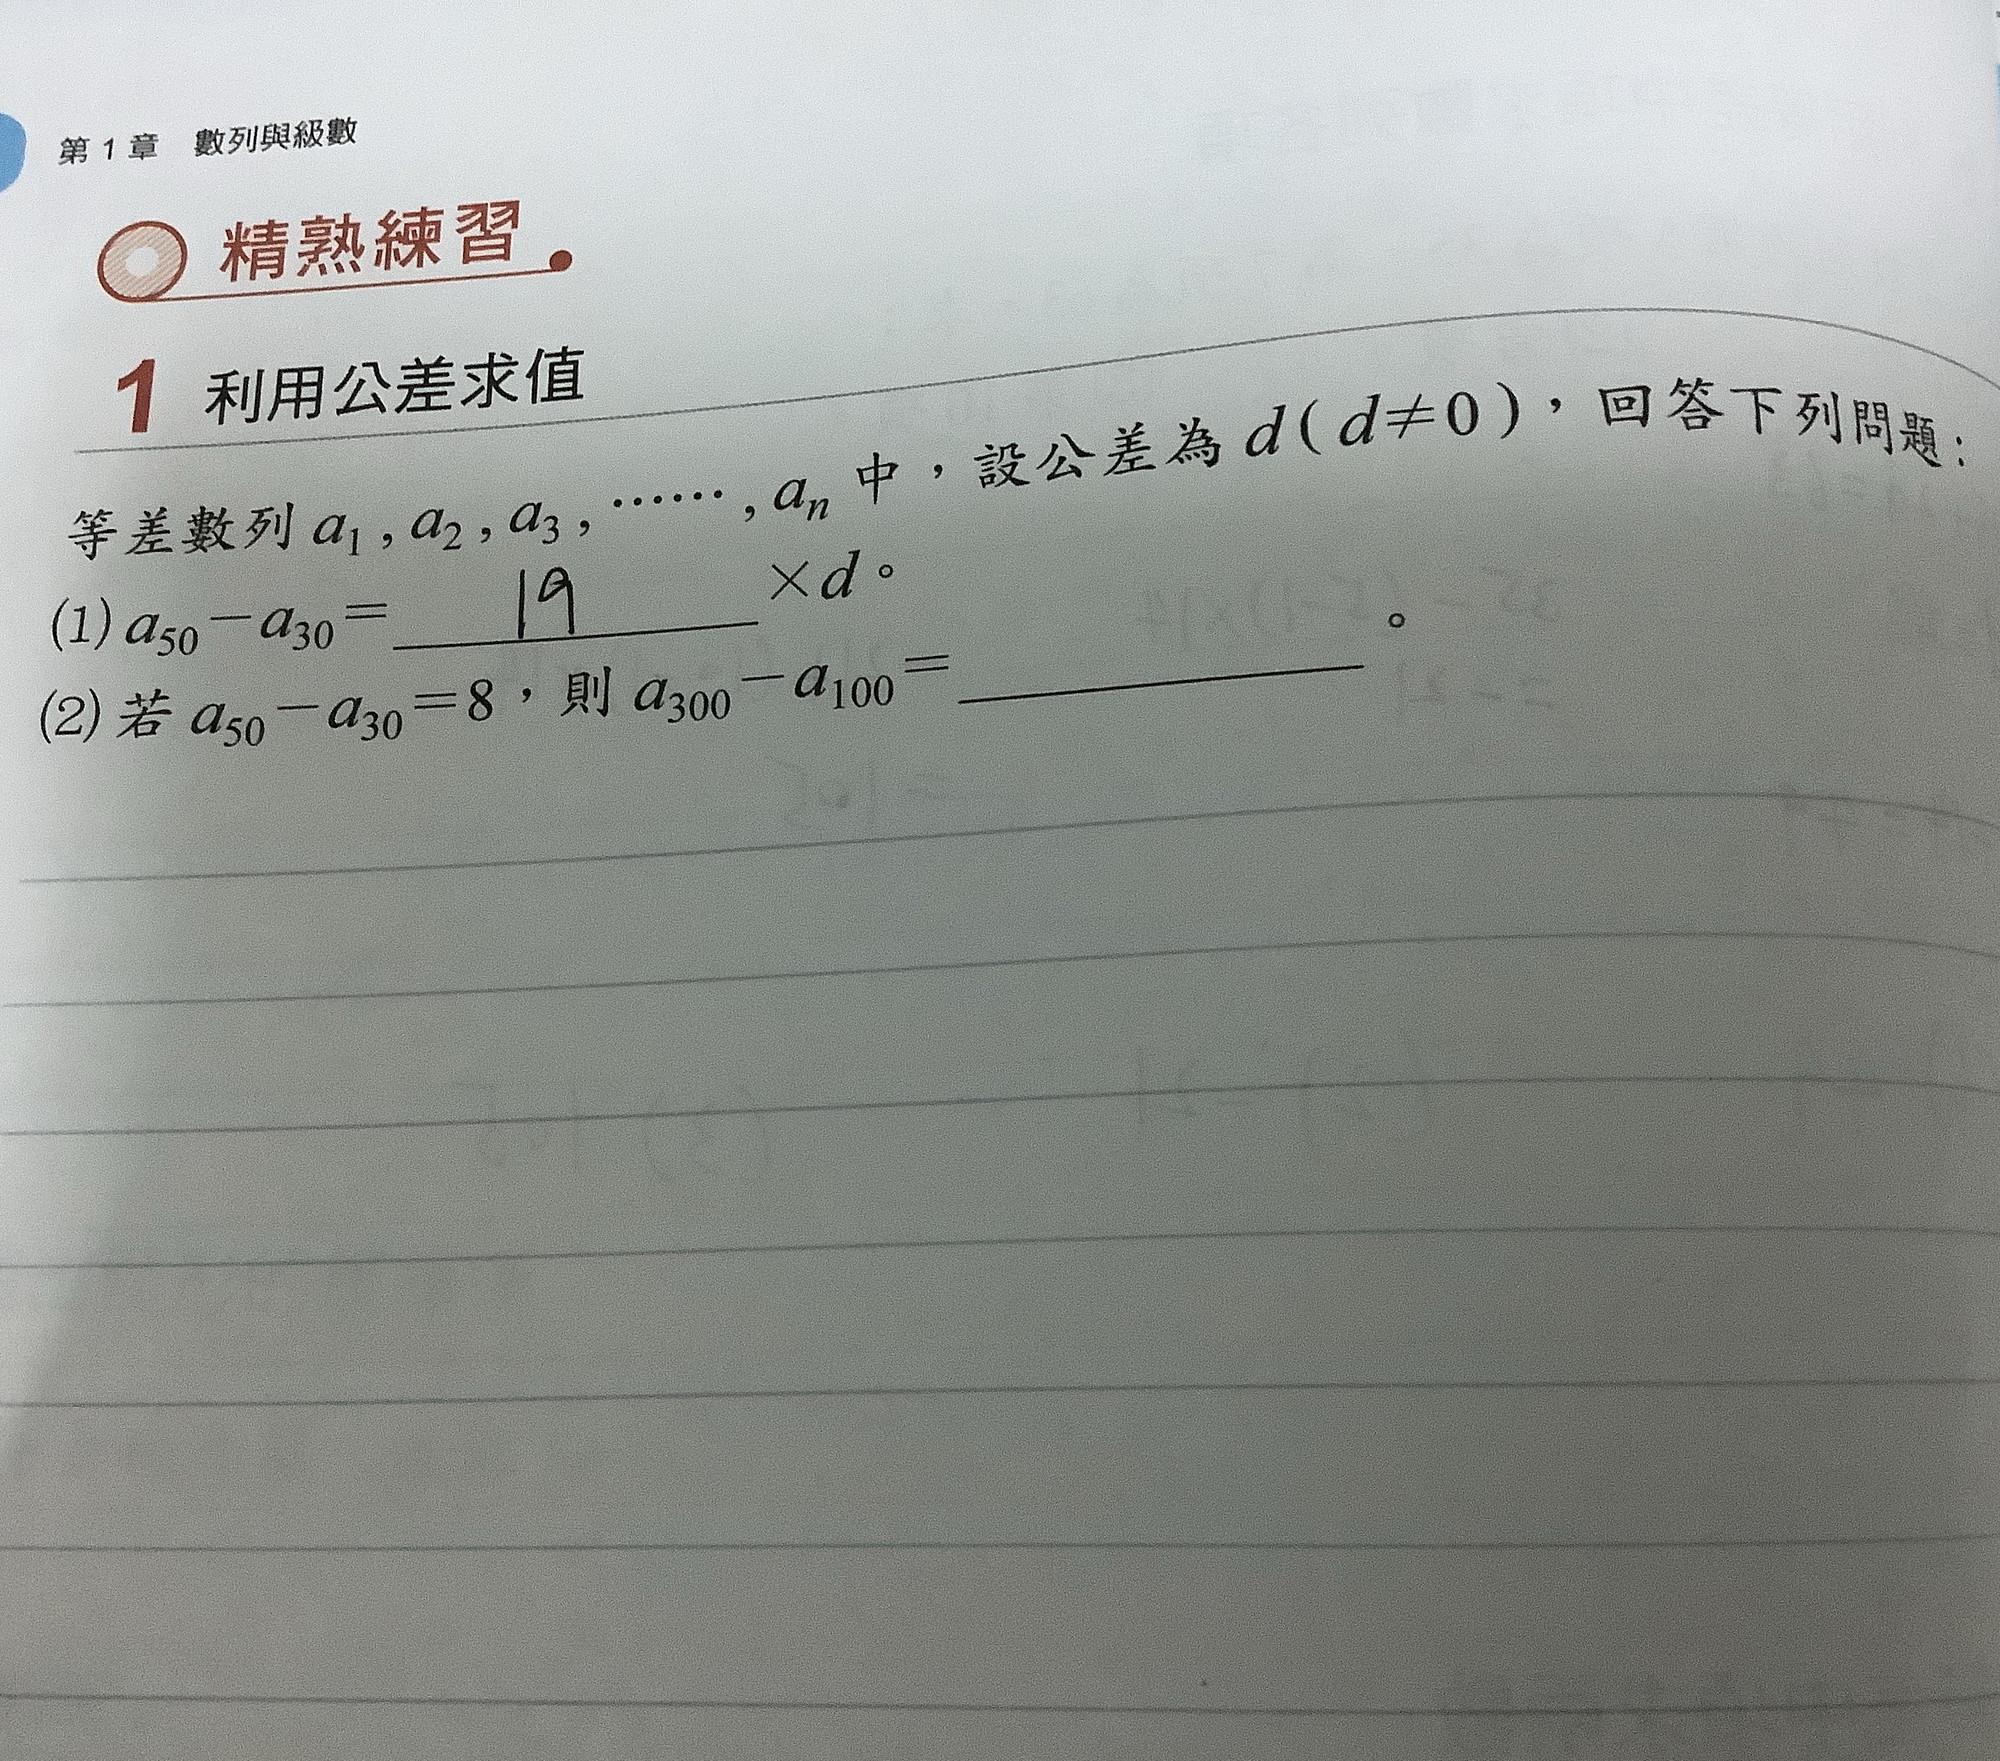 第 1 章 數列與級數
精熟練習
1 利用公差求值
等差數列 a₁, a₂, a₃, ⋯⋯, aₙ 中，設公差為 d(d≠0)，回答下列問題：
(1) a₅₀－a₃₀＝ 19 ×d。
(2) 若 a₅₀－a₃₀＝8，則 a₃₀₀－a₁₀₀＝______。